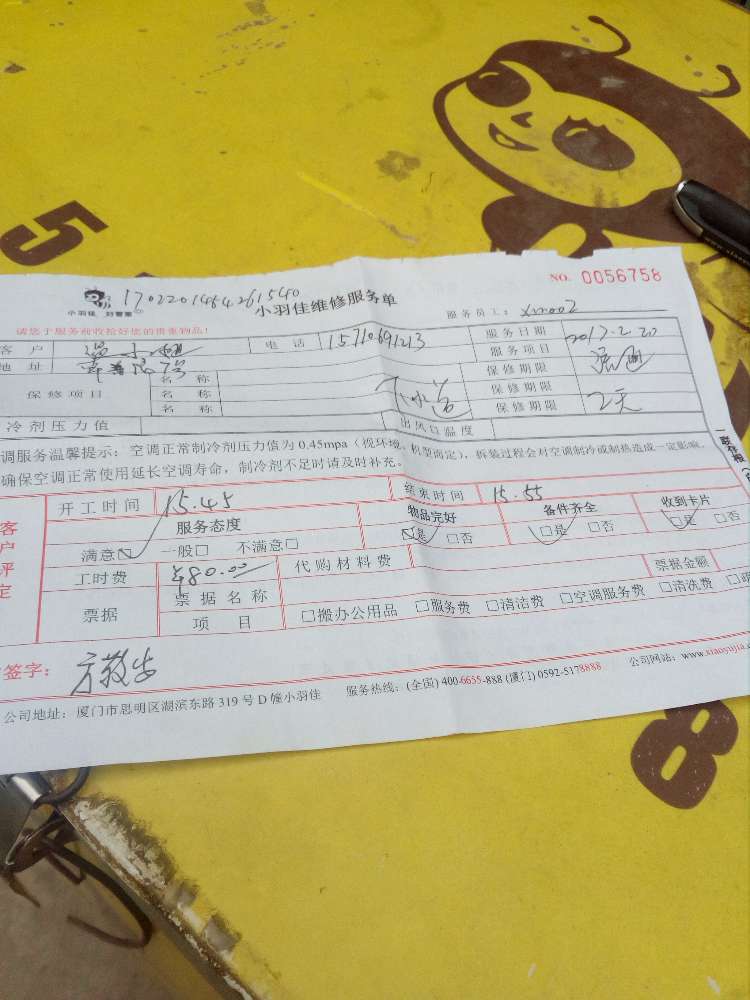 5
NO. 0056758
小羽佳 刘管家 1702201484261540 小羽佳维修服务单 服务员工：xm002
请您于服务前收拾好您的贵重物品！
客 户 小姐 电 话 15710691213 服务日期 2017.2.20
地 址 服务项目 疏通
保修项目 名 称 下水管 保修期限
名 称 保修期限
名 称 保修期限 2天
冷剂压力值 出风口温度
调服务温馨提示：空调正常制冷剂压力值为 0.45mpa（视环境、机型而定），拆装过程会对空调制冷或制热造成一定影响，
确保空调正常使用延长空调寿命，制冷剂不足时请及时补充。
一联存根
客户评定
开工时间 15.45 结束时间 15.55
服务态度 物品完好 备件齐全 收到卡片
满意☑ 一般□ 不满意□ ☑是 □否 ☑是 □否 ☑是 □否
工时费 ¥80.00 代购材料费 票据金额
票据 票据名称
项 目 □搬办公用品 □服务费 □清洁费 □空调服务费 □清洗费
签字：
公司地址：厦门市思明区湖滨东路 319 号 D 幢小羽佳 服务热线：(全国) 400-6655-888 (厦门) 0592-5178888 公司网站：www.xiaoyujia.c
8